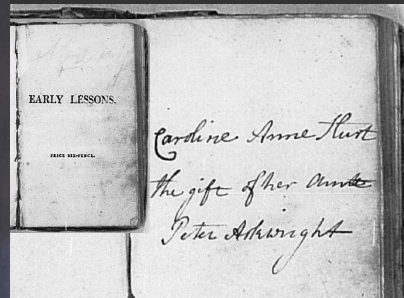 EARLY LESSONS.
PRICE SIX-PENCE.
Caroline Anne Hurt
the gift of her Aunt
Peter Arkwright